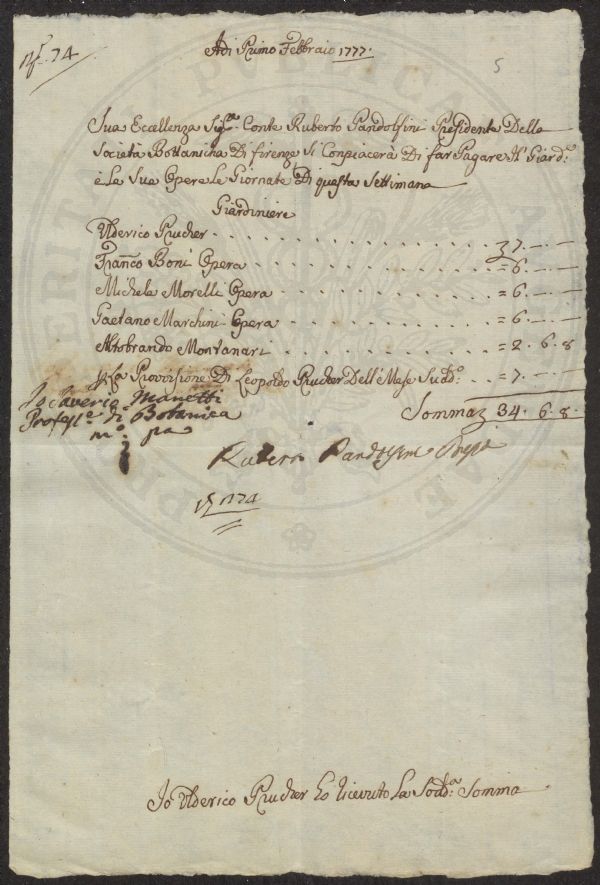 N.º 74.
Adi Primo Febbraio 1777.
5
Sua Eccellenza Sig.ʳᵃ Conte Ruberto Pandolfini Presidente Della
Società Bottanicha Di firenze Si Conpiacerà Di far Pagare Il Giard.ᵉ
è La Sue Opere Le Giornate Di questa Settimana
Giardiniere
Ulderico Prucher . . . . . . . . . . 7. — . —
Franco Boni Opera . . . . . . . . . = 6. — . —
Michele Morelli Opera . . . . . . . . = 6. — . —
Gaetano Marchini Opera . . . . . . . = 6. — . —
Altobrando Montanari . . . . . . . . = 2. 6. 8
La Provisione Di Leopoldo Prucher Dell' Mese Sudd.º . . = 7. — . —
Somma 34. 6. 8.
Io Saverio Manetti
Profess.ᵉ di Botanica
m.º pa
Ruberto Pandolfini Presid
174
Io Ulderico Prucher ho ricevuto La Sodd.ᵃ Somma